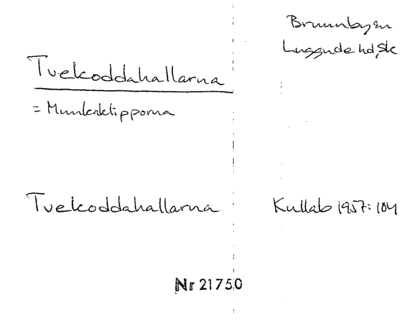 Brunnby sn
Luggude hd, Sk
Tvekoddahallarna
= Munkaklipporna
Tvekoddahallarna Kullab 1957: 104
Nr 21750